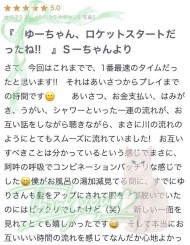 ★★★★★ 5.0
『 ゆーちゃん、ロケットスタートだ
ったね!! 』Sーちゃんより
さて、今回はこれまでで、1番最速のタイムだっ
たと思います!! それはあいさつからプレイまで
の時間です😄 あいさつ、お金支払い、はみが
き、うがい、シャワーといった一連の流れが、お
互い話をしながら聴きながら、まさに川の流れの
ようにとてもスムーズに流れていました! お互い
すべきことは分かっているという感じでまさに、
阿吽の呼吸でコンビネーションバッチリな感じで
した😄僕がお風呂の湯加減見てる間に、すでにゆ
りさんも髪をアップにされて
ビックリでしたけど(笑) 新しい一面を
見れてとても嬉しかったです😄 そして本当に
お互いいい時間の流れを感じてなんだか心地よかっ